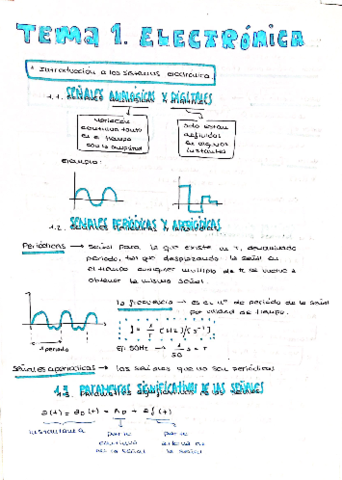 TEMA 1. ELECTRÓNICA
1. Introducción a los sistemas electrónica
1.1. SEÑALES ANALÓGICAS Y DIGITALES
variación
continua tanto
en el tiempo
como la amplitud
solo están
definidas
en algunos
instantes
ejemplo:
1.2. SEÑALES PERIÓDICAS Y APERIÓDICAS
Periódicas → Señal para la que existe un T, denominado
periodo, tal que desplazando la señal en
el tiempo cualquier multiplo de T se vuelve a
obtener la misma señal.
la frecuencia → es el nº de periodo de la señal
por unidad de tiempo.
f = 1/T (Hz)/(s⁻¹)
1 periodo
Ej: 50Hz → 1/50 s = T
Señales aperiódicas → las señales que no son periódicas
1.3. PARÁMETROS SIGNIFICATIVOS DE LAS SEÑALES
instantánea
parte
continua
de la señal
parte
alterna de
la señal